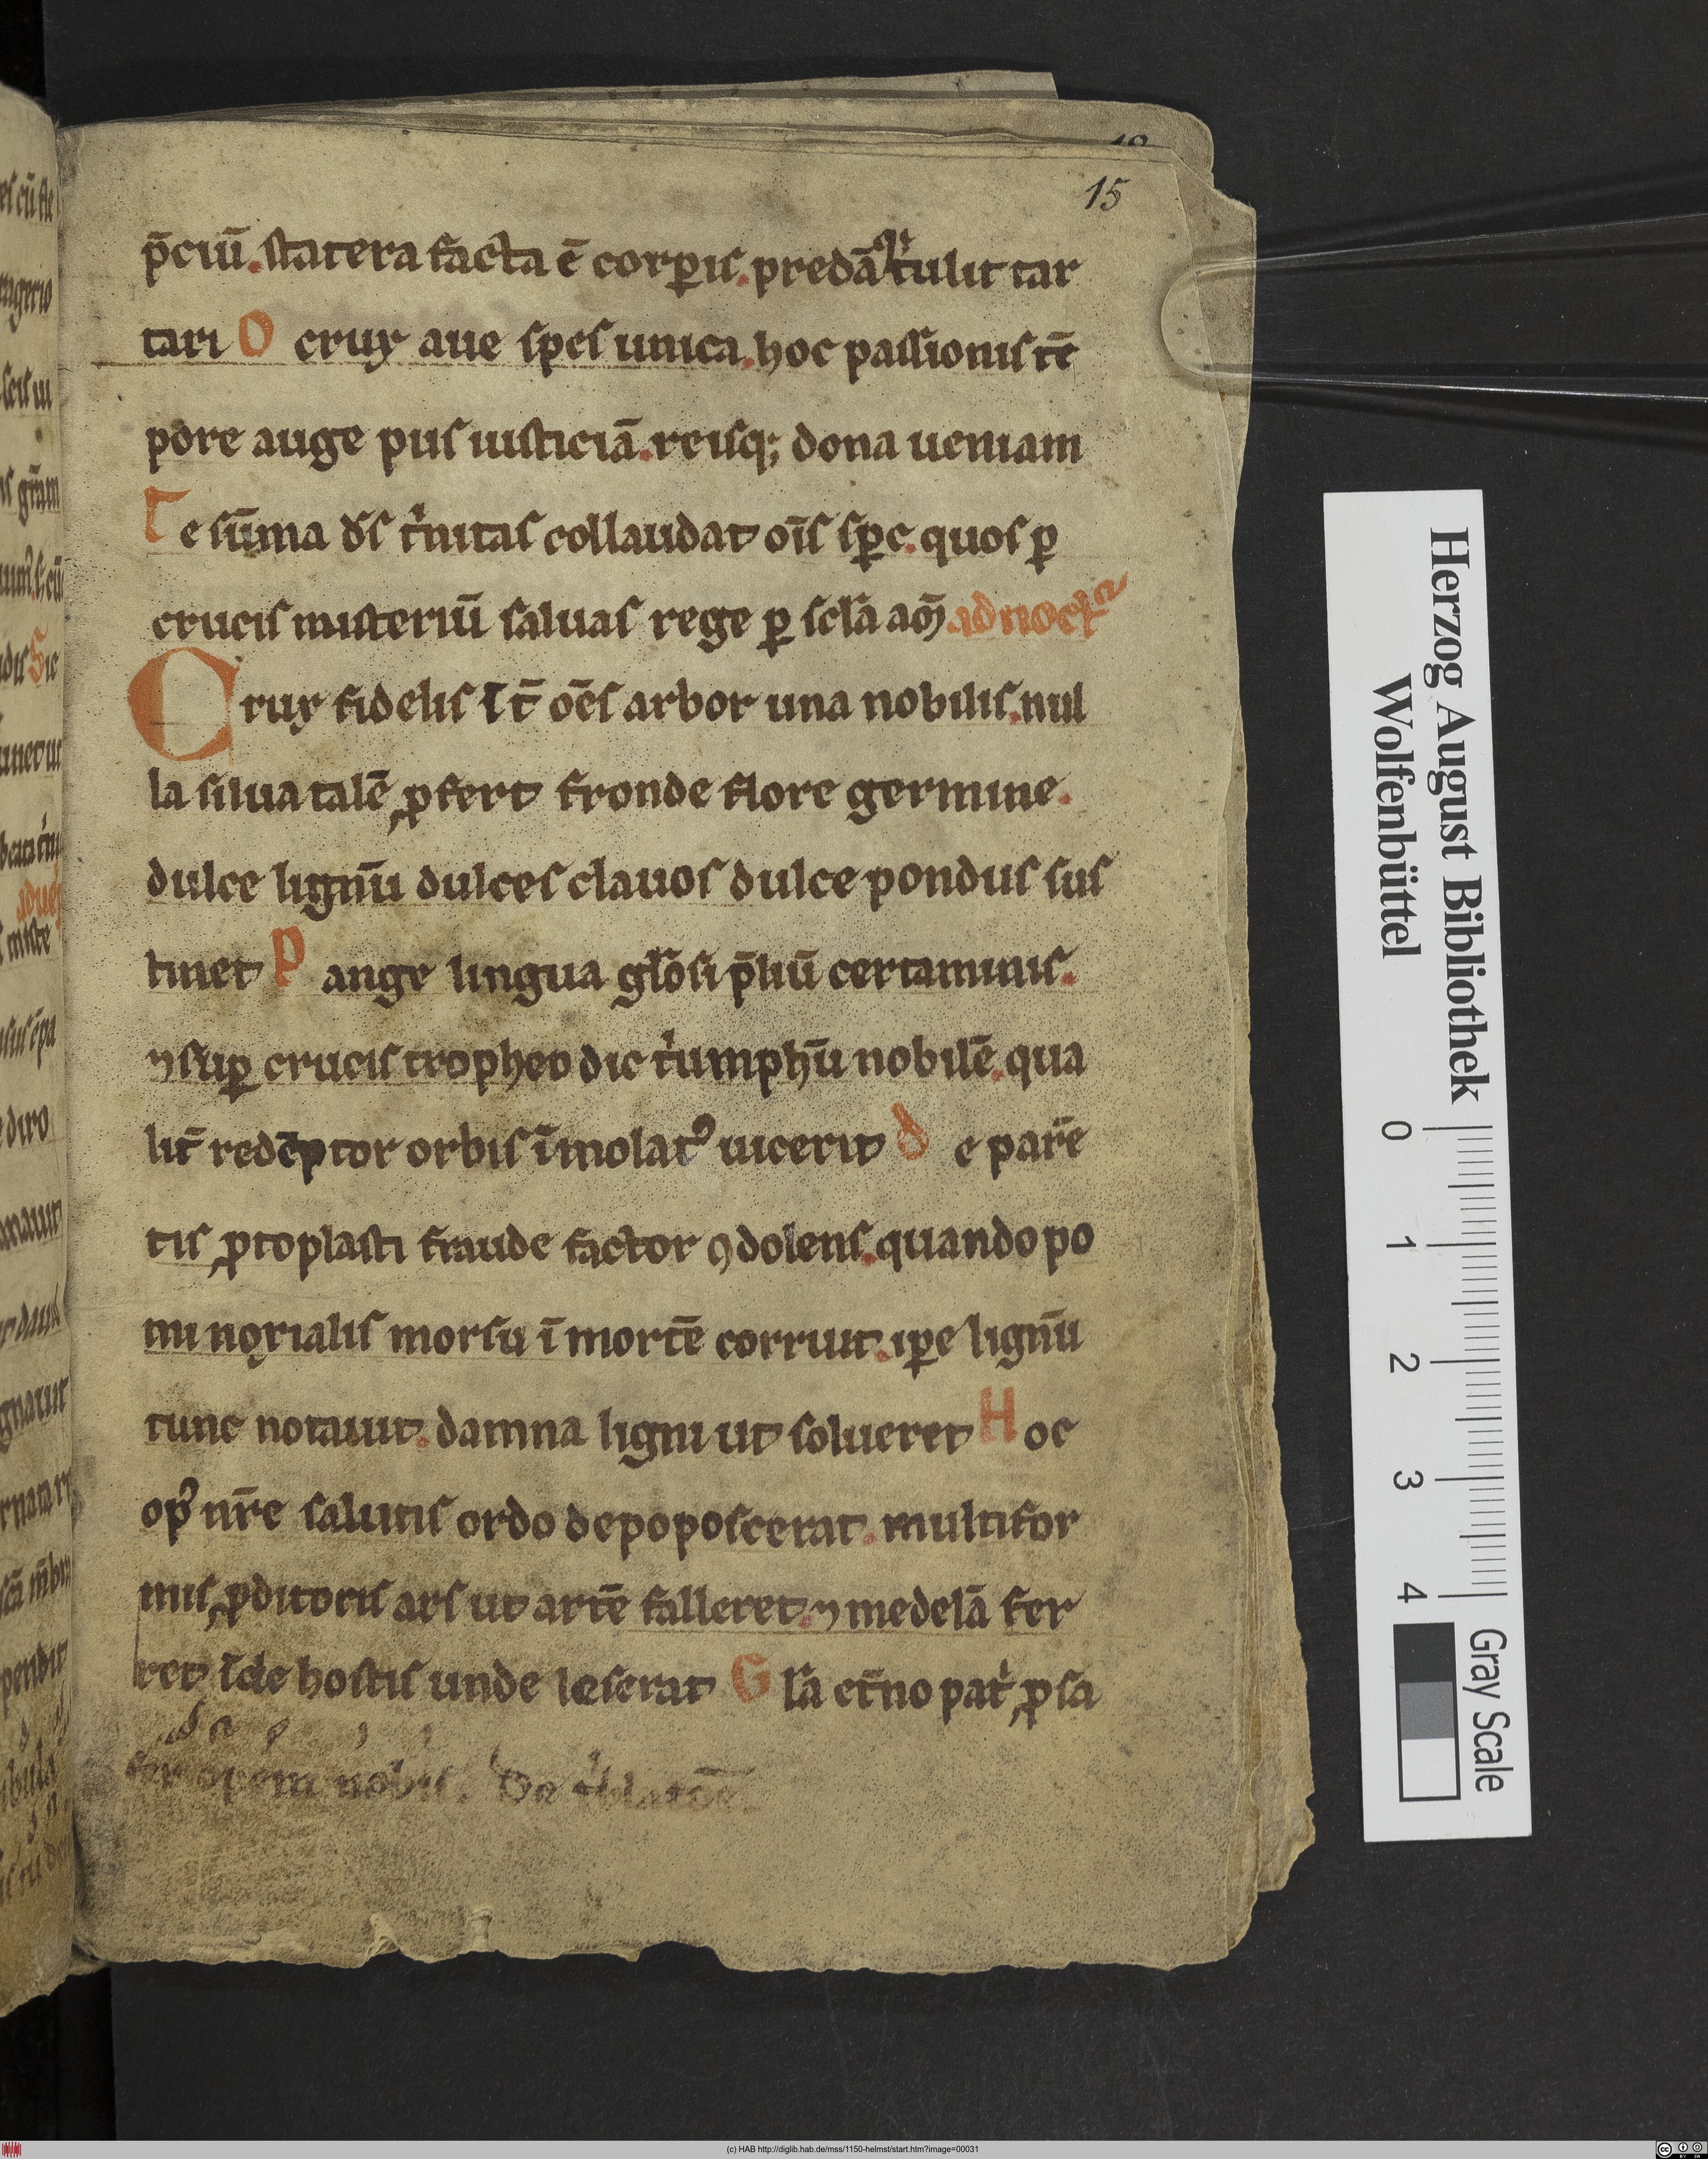 15
p̄ciū. statera facta ē corꝑis. predā qꝫ tulit tar
tari O crux aue spes unica. hoc passionis tē
pore auge piis iusticiā. reisqꝫ dona ueniam
Te sūma ds̄ tⁱnitas collaudat oīs sꝑc. quos ꝑ
crucis misteriū saluas rege ꝑ sclā am̄ ad noctᵃ
Crux fidelis īt̄ oēs arbor una nobilis. nul
la silua talē ꝓfert fronde flore germine.
dulce lignū dulces clauos dulce pondus sus
tinet Pange lingua glōsi p̄liū certaminis.
⁊ suꝑ crucis tropheo dic tⁱumphū nobilē. qua
lit̄ redēptor orbis īmolatꝰ uicerit de parē
tis ꝓtoplasti fraude factor ꝯdolens. quando po
mi noxialis morsu ī mortē corruit. iꝑe lignū
tunc notauit. damna ligni ut solueret Hoc
opꝰ nr̄e salutis ordo depoposcerat. multifor
mis ꝓditoris ars ut artē falleret. ⁊ medelā fer
ret īde hostis unde leserat Glā et̄no patⁱ ꝓ sa
opem nobis.
Herzog August Bibliothek
Wolfenbüttel
0 1 2 3 4
Gray Scale
(c) HAB http://diglib.hab.de/mss/1150-helmst/start.htm?image=00031